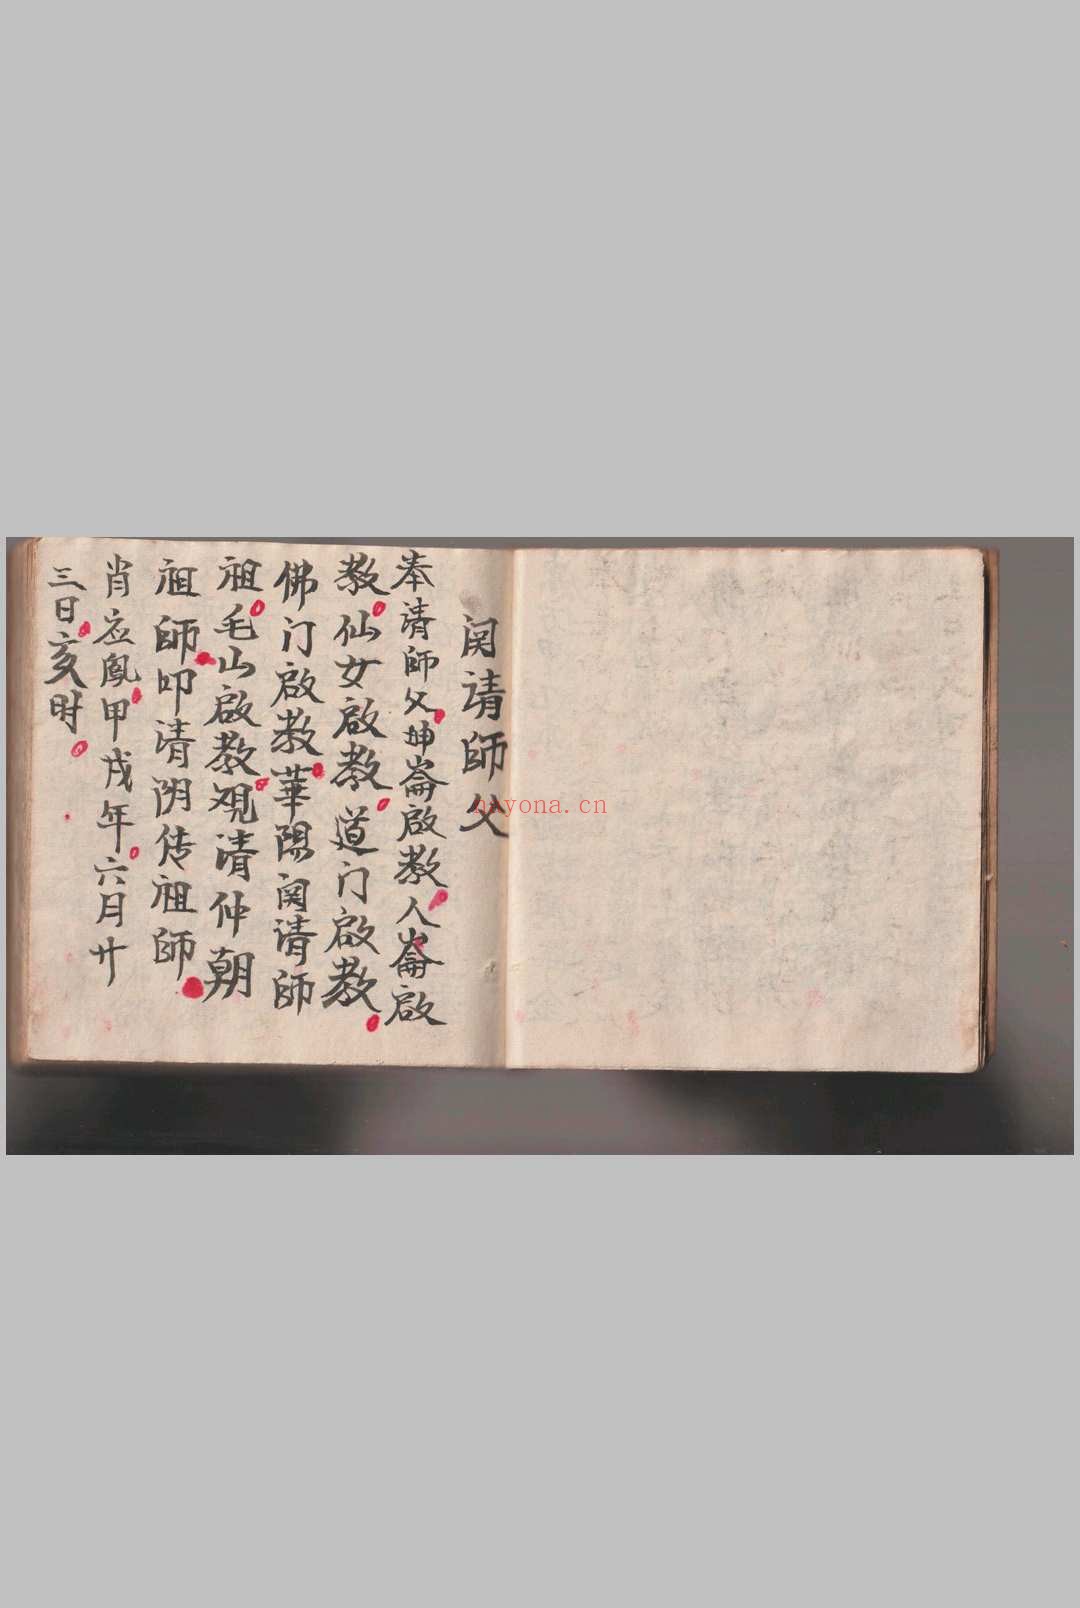 関请師父
奉请師父坤崙啟教人崙啟
教仙女啟教道门啟教
佛门啟教華陽関请師
祖毛山啟教观清仲朝
祖師叩清阴传祖師
肖应鳳甲戌年六月廿
三日亥时
nayona.cn